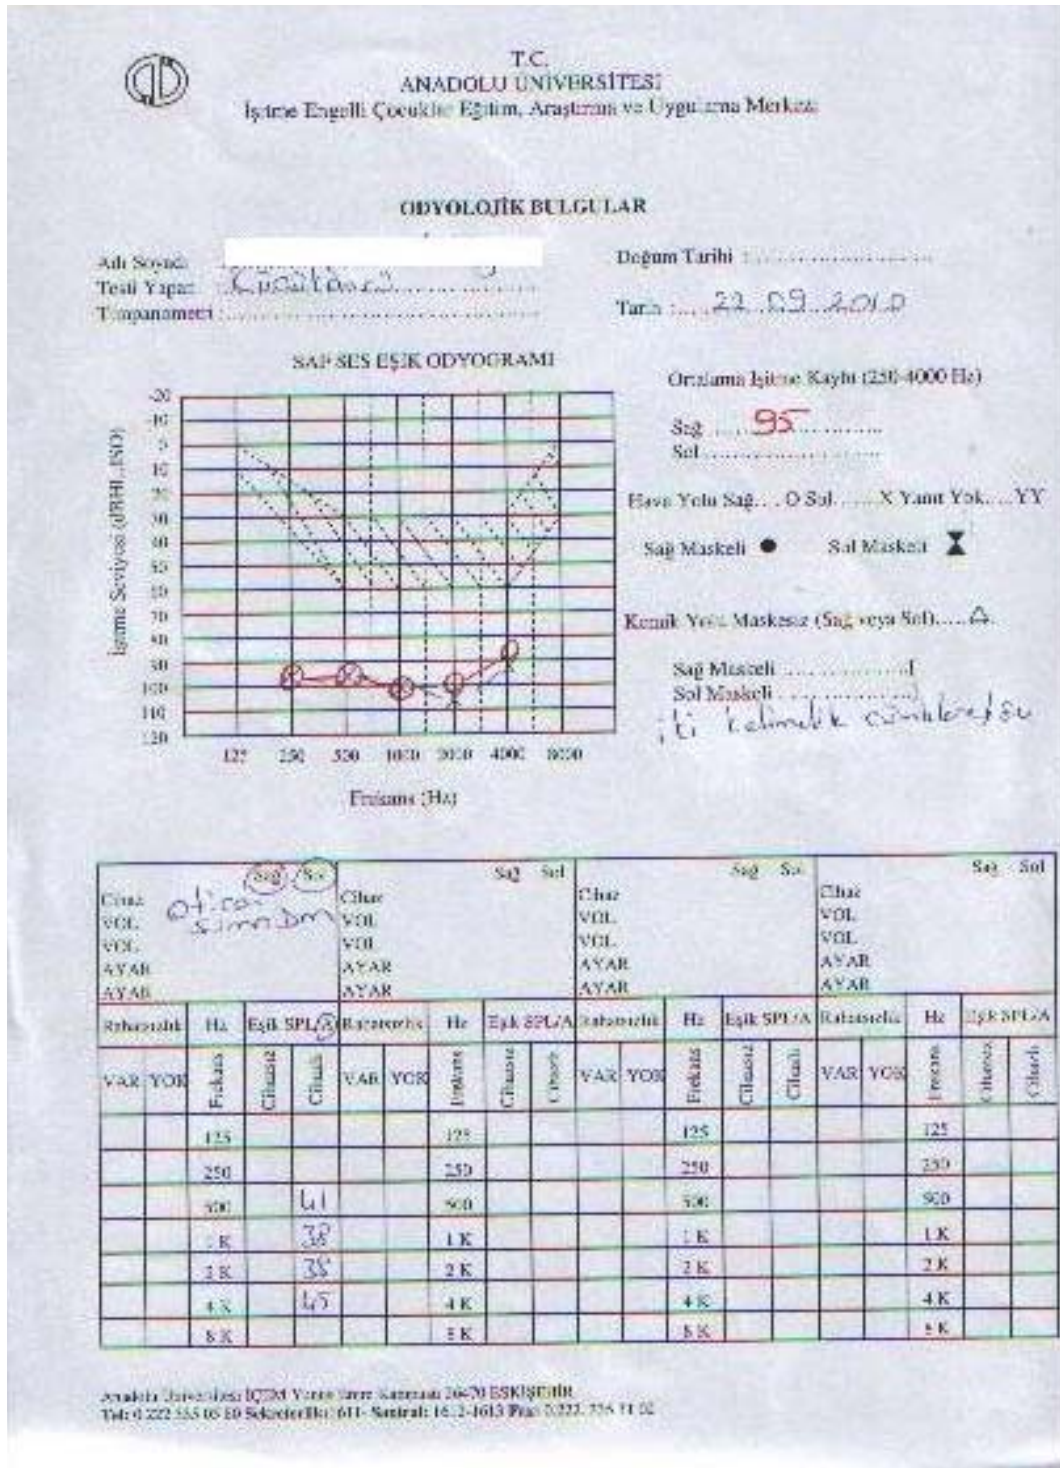 T.C.
ANADOLU ÜNİVERSİTESİ
İşitme Engelli Çocuklar Eğitim, Araştırma ve Uygulama Merkezi
ODYOLOJİK BULGULAR
Adı Soyadı
Testi Yapan
Timpanometri :
Doğum Tarihi :
Tarih : 09 2010
SAF SES EŞİK ODYOGRAMI
İşitme Seviyesi (dBHL, ISO)
-20
-10
10
20
30
40
50
60
70
80
90
100
110
120
125 250 500 1000 2000 4000 8000
Frekans (Hz)
Ortalama İşitme Kaybı (250-4000 Hz)
Sağ 95
Sol
Hava Yolu Sağ....O Sol.......X Yanıt Yok....YY
Sağ Maskeli ● Sol Maskeli
Kemik Yolu Maskesiz (Sağ veya Sol).....△
Sağ Maskeli ...............[
Sol Maskeli ...............]
iki kelimelik
Sağ Sol Sağ Sol Sağ Sol Sağ Sol
Cihaz Cihaz Cihaz Cihaz
VOL VOL VOL VOL
VOL VOL VOL VOL
AYAR AYAR AYAR AYAR
AYAR AYAR AYAR AYAR
Rahatsızlık Hz Eşik SPL/A Rahatsızlık Hz Eşik SPL/A Rahatsızlık Hz Eşik SPL/A Rahatsızlık Hz Eşik SPL/A
VAR YOK Frekans Cihazsız Cihazlı VAR YOK Frekans Cihazsız Cihazlı VAR YOK Frekans Cihazsız Cihazlı VAR YOK Frekans Cihazsız Cihazlı
125 125 125 125
250 250 250 250
500 41 500 500 500
1 K 38 1 K 1 K 1 K
2 K 38 2 K 2 K 2 K
4 K 45 4 K 4 K 4 K
8 K 8 K 8 K 8 K
Anadolu Üniversitesi İÇEM Yunus Emre Kampusü 26470 ESKİŞEHİR
Tel: 0 222 Santral: 1612-1613 Fax: 0.222.